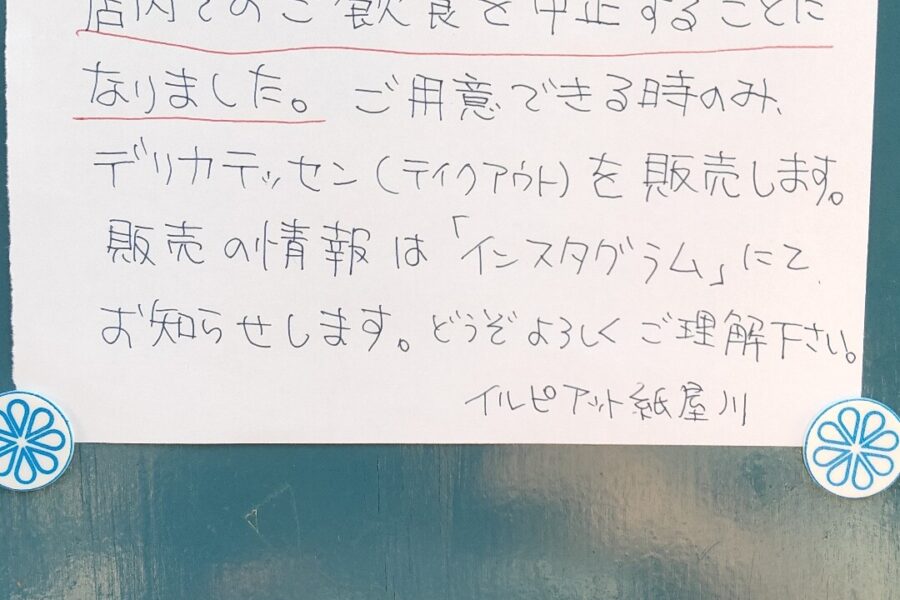 店内でのご飲食を中止することに
なりました。ご用意できる時のみ、
デリカテッセン(テイクアウト)を販売します。
販売の情報は「インスタグラム」にて
お知らせします。どうぞよろしくご理解下さい。
イルピアット紙屋川